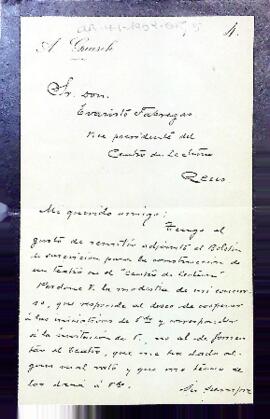 4.
A
Sr. Don.
Evaristo Fabregas
Vice presidente del
Centro de Lectura
Reus
Mi querido amigo: Tengo el
gusto de remitir adjunto el Boletin
de suscripcion para la construccion de
un teatro en el "Centro de Lectura"
Perdone V. la modestia de mi concur-
so, que responde al deseo de cooperar
á las iniciativas de Vds y corresponder
á la invitacion de V., no al de fomen-
tar el teatro, que me ha dado al-
gun mal rato y que uno tiende
de los dará á Vds.
Su siempre